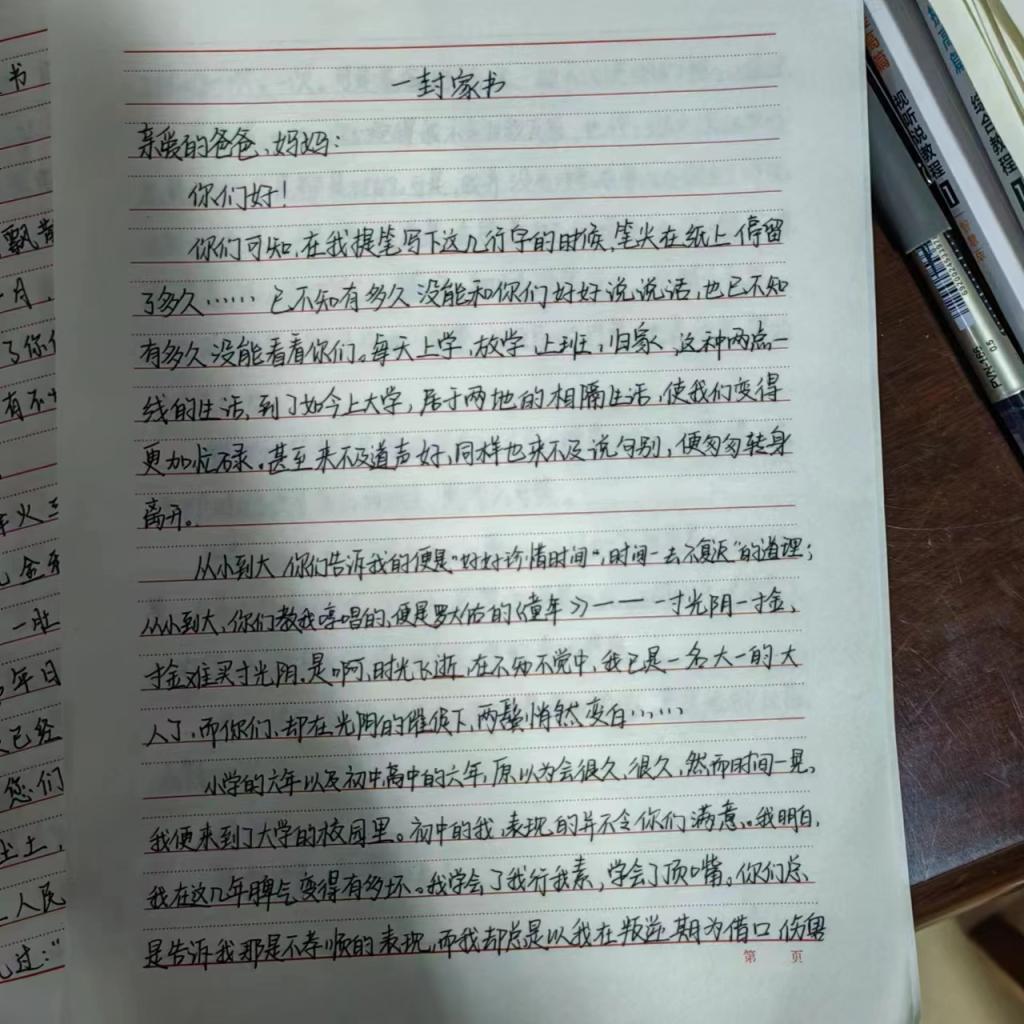 一封家书
亲爱的爸爸、妈妈：
你们好！
你们可知，在我提笔写下这几行字的时候，笔尖在纸上停留
了多久……已不知有多久没能和你们好好说说话，也已不知
有多久没能看看你们。每天上学，放学，上班，归家，这种两点一
线的生活，到了如今上大学，居于两地的相隔生活，使我们变得
更加忙碌。甚至来不及道声好，同样也来不及说句别，便匆匆转身
离开。
从小到大，你们告诉我的便是“好好珍惜时间”，时间一去不复返”的道理；
从小到大，你们教我哼唱的，便是罗大佑的《童年》——一寸光阴一寸金，
寸金难买寸光阴。是啊，时光飞逝，在不知不觉中，我已是一名大一的大
人了，而你们，却在光阴的催促下，两鬓悄然变白……
小学的六年以及初中高中的六年，原以为会很久，很久，然而时间一晃，
我便来到了大学的校园里。初中的我，表现的并不令你们满意。我明白，
我在这几年脾气变得有多坏。我学会了我行我素，学会了顶嘴。你们总
是告诉我那是不孝顺的表现，而我却总是以我在叛逆期为借口伤害
第 页
书
飘散
月，
了你们
金
一肚
年日
已经
您们
土，
人民
过：“
视听说教程 1
综合教程
0.5